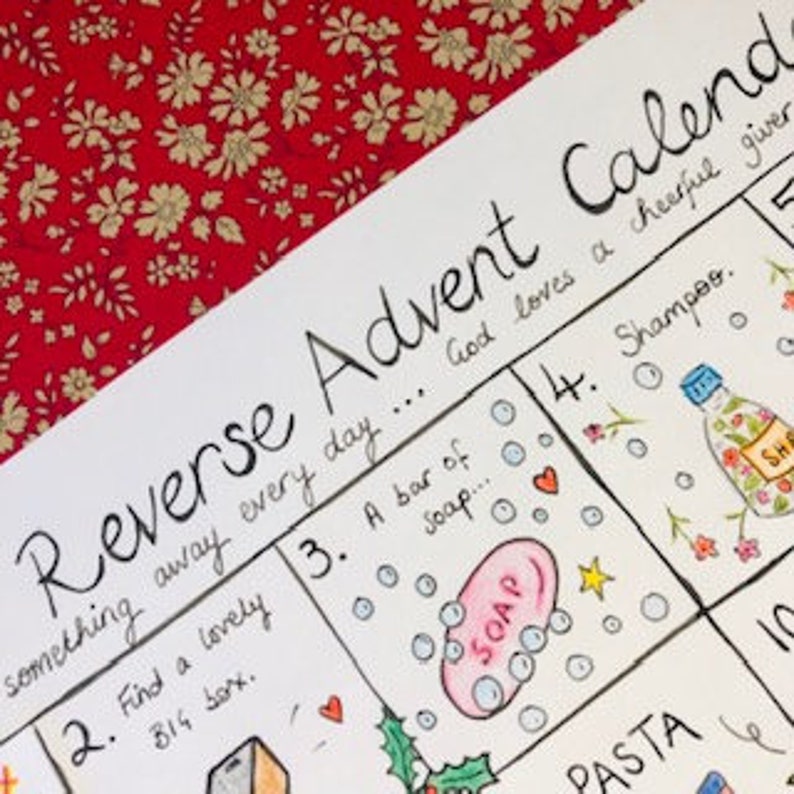 Reverse Advent Calend
something away every day... God loves a cheerful giver
2. Find a lovely
BIG box.
3. A bar of
soap...
SOAP
4. Shampoo.
SHA
5
10
PASTA